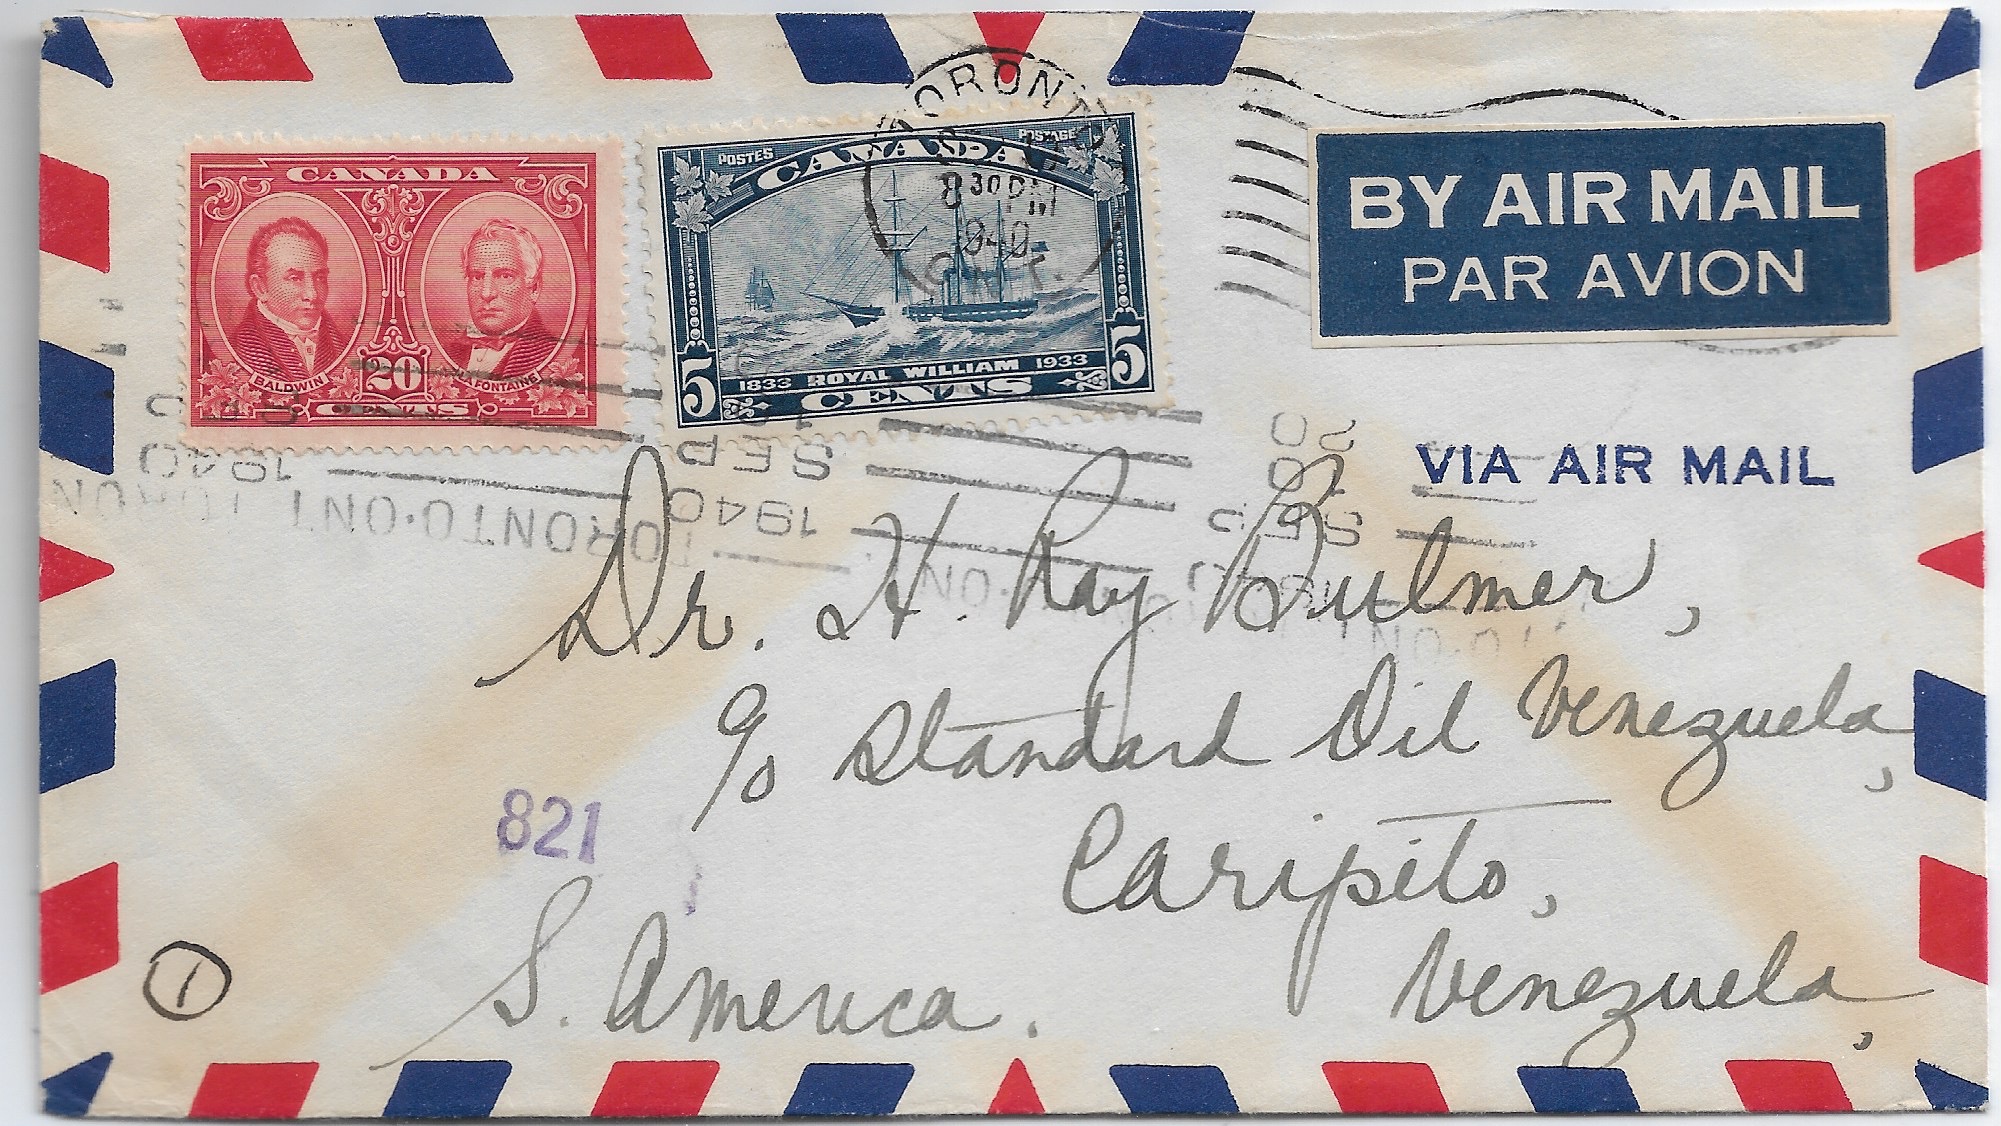 CANADA
BALDWIN
20
LA FONTAINE
CENTS
POSTES
POSTAGE
CANADA
5
1833 ROYAL WILLIAM 1933
5
CENTS
TORONTO
8 30 PM
1940
ONT.
BY AIR MAIL
PAR AVION
VIA AIR MAIL
SEP
1940
TORONTO·ONT
SEP
1940
TORONTO·ONT
Dr. H. Ray Bulmer,
c/o Standard Oil Venezuela,
Caripito,
Venezuela,
S. America.
821
1